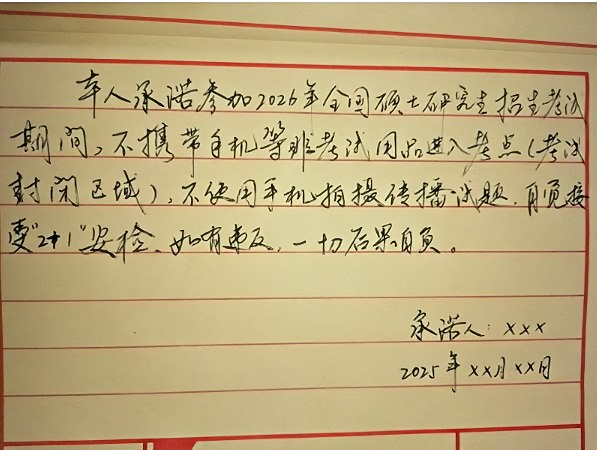 本人承诺参加2026年全国硕士研究生招生考试
期间，不携带手机等非考试用品进入考点（考试
封闭区域），不使用手机拍摄传播试题，自觉接
受"2+1"安检、如有违反，一切后果自负。
承诺人：xxx
2025年xx月xx日